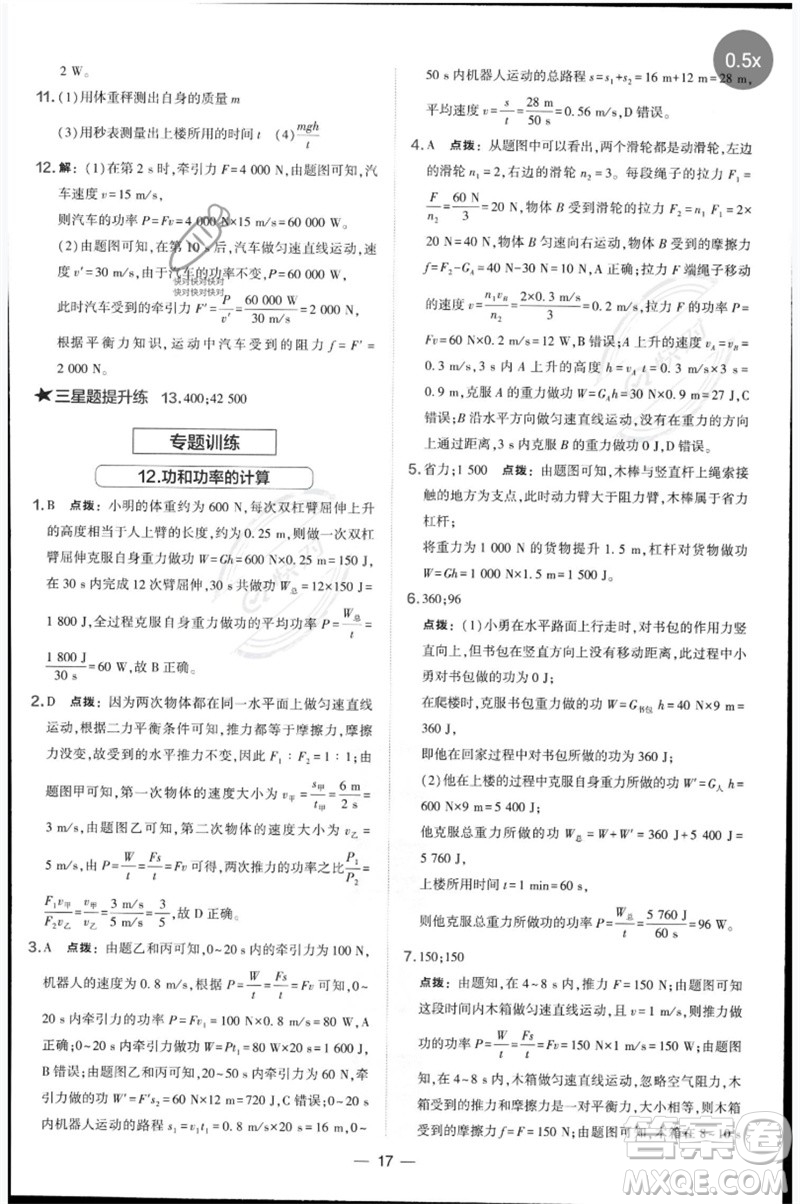 0.5x
2 W。
11. (1)用体重秤测出自身的质量 m
(3)用秒表测量出上楼所用的时间 t (4) mgh/t
12. 解：(1)在第 2 s 时，牵引力 F=4 000 N，由题图可知，汽
车速度 v=15 m/s，
则汽车的功率 P=Fv=4 000 N×15 m/s=60 000 W。
(2)由题图可知，在第 10 s 后，汽车做匀速直线运动，速
度为 v′=30 m/s，由于汽车功率恒定，则 P=60 000 W，
快对快对快对
快对快对快对
此时汽车受到的牵引力 F′=P/v′=60 000 W/30 m/s=2 000 N，
根据平衡力知识，运动中汽车受到的阻力 f=F′=
2 000 N。
★三星题提升练 13.400;42 500
专题训练
12.功和功率的计算
1. B 点拨：小明的体重约为 600 N，每次双杠臂屈伸上升
的高度相当于人上臂的长度，约为 0.25 m，则做一次双杠
臂屈伸克服自身重力做功 W=Gh=600 N×0.25 m=150 J，
在 30 s 内完成 12 次臂屈伸，共做功 W总=12×150 J=
1 800 J，全过程克服自身重力做功的平均功率 P=W总/t=
1 800 J/30 s=60 W，故 B 正确。
2. D 点拨：因为两次物体都在同一水平面上做匀速直线
运动，根据二力平衡条件可知，推力都等于摩擦力，摩擦
力没变，故受到的水平推力不变，因此 F₁∶F₂=1∶1；由
题图甲可知，第一次物体的速度大小 v甲=s甲/t甲=6 m/2 s=
3 m/s，由题图乙可知，第二次物体的速度大小为 v乙=
5 m/s，由 P=W/t=Fs/t=Fv 可得，两次推力的功率之比P₁/P₂=
F₁v甲/F₂v乙=v甲/v乙=3 m/s/5 m/s=3/5，故 D 正确。
3. A 点拨：由题图乙和丙可知，0~20 s 内的牵引力为 100 N，
机器人的速度为 0.8 m/s，根据 P=W/t=Fs/t=Fv 可知，0~
20 s 内牵引力的功率 P=Fv₁=100 N×0.8 m/s=80 W，A
正确；0~20 s 内牵引力做功 W=Pt₁=80 W×20 s=1 600 J，
B 错误；由题图可知，20~50 s 内牵引力为 60 N，牵引力做
功 W′=F′s₂=60 N×12 m=720 J，C 错误；0~20 s 内机器
人运动的路程 s₁=v₁t₁=0.8 m/s×20 s=16 m，由题图可知，
50 s 内机器人运动的总路程 s=s₁+s₂=16 m+12 m=28 m，
平均速度 v=s/t=28 m/50 s=0.56 m/s，D 错误。
4. A 点拨：从题图中可以看出，两个滑轮都是动滑轮，左边
的滑轮 n₁=2，右边的滑轮 n₂=3。每段绳子的拉力 F₁=
F/n₂=60 N/3=20 N，物体 B 受到的拉力 F₂=n₁ F₁=2×
20 N=40 N，物体 B 匀速向右运动，物体 B 受到的摩擦力
f=F₂-G_A=40 N-10 N=30 N，A 正确；拉力 F 端绳子移动
的速度 v=n₁v_B/t=2×0.3 m/s=0.6 m/s，拉力 F 的功率 P=
Fv=60 N×0.6 m/s=36 W，B 错误；A 上升的速度 v_A=v_B=
0.3 m/s，A 在 9 s 内上升的高度 h=v_A t=0.3 m/s×9 s=
2.7 m，克服 A 的重力做功 W=G_A h=10 N×2.7 m=27 J，C
错误；B 沿水平方向做匀速直线运动，没有在重力的方向
上通过距离，3 s 内克服 B 的重力做功为零，D 错误。
5. 省力；1 500 点拨：由题图可知，木棒与竖直杆上绳索接
触的地方为支点，此时动力臂大于阻力臂，木棒属于省力
杠杆；
将重力为 1 000 N 的货物提升 1.5 m，杠杆对货物做功
W=Gh=1 000 N×1.5 m=1 500 J。
6. 360;96
点拨：(1)小勇在水平路面上行走时，对书包的作用力竖
直向上，而书包在竖直方向上没有移动距离，此过程中小
勇对书包做的功为 0 J；
在爬楼时，他对书包做的功 W=G书包 h=40 N×9 m=
360 J，
即他在回家过程中对书包做的功为 360 J；
(2)他在上楼的过程中克服自身重力做功 W′=G人 h=
600 N×9 m=5 400 J；
他克服总重力所做的功 W总=W+W′=360 J+5 400 J=
5 760 J，
上楼所用时间 t=1 min=60 s，
则他克服总重力做功的功率 P=W总/t=5 760 J/60 s=96 W。
7. 150;150
点拨：由题知，在 4~8 s 内，推力 F=150 N；由题图丙可
知，这段时间内木箱做匀速直线运动，速度 v=1 m/s，推力做
功的功率 P=W/t=Fs/t=Fv=150 N×1 m/s=150 W；
由题图可知，在 4~8 s 内，木箱做匀速直线运动，忽略空气阻力，木
箱受到的推力和摩擦力是一对平衡力，大小相等，则摩擦
力的大小 f=F=150 N；由题图可知，木箱在 8~10 s
17
答案圈
MXQE.COM